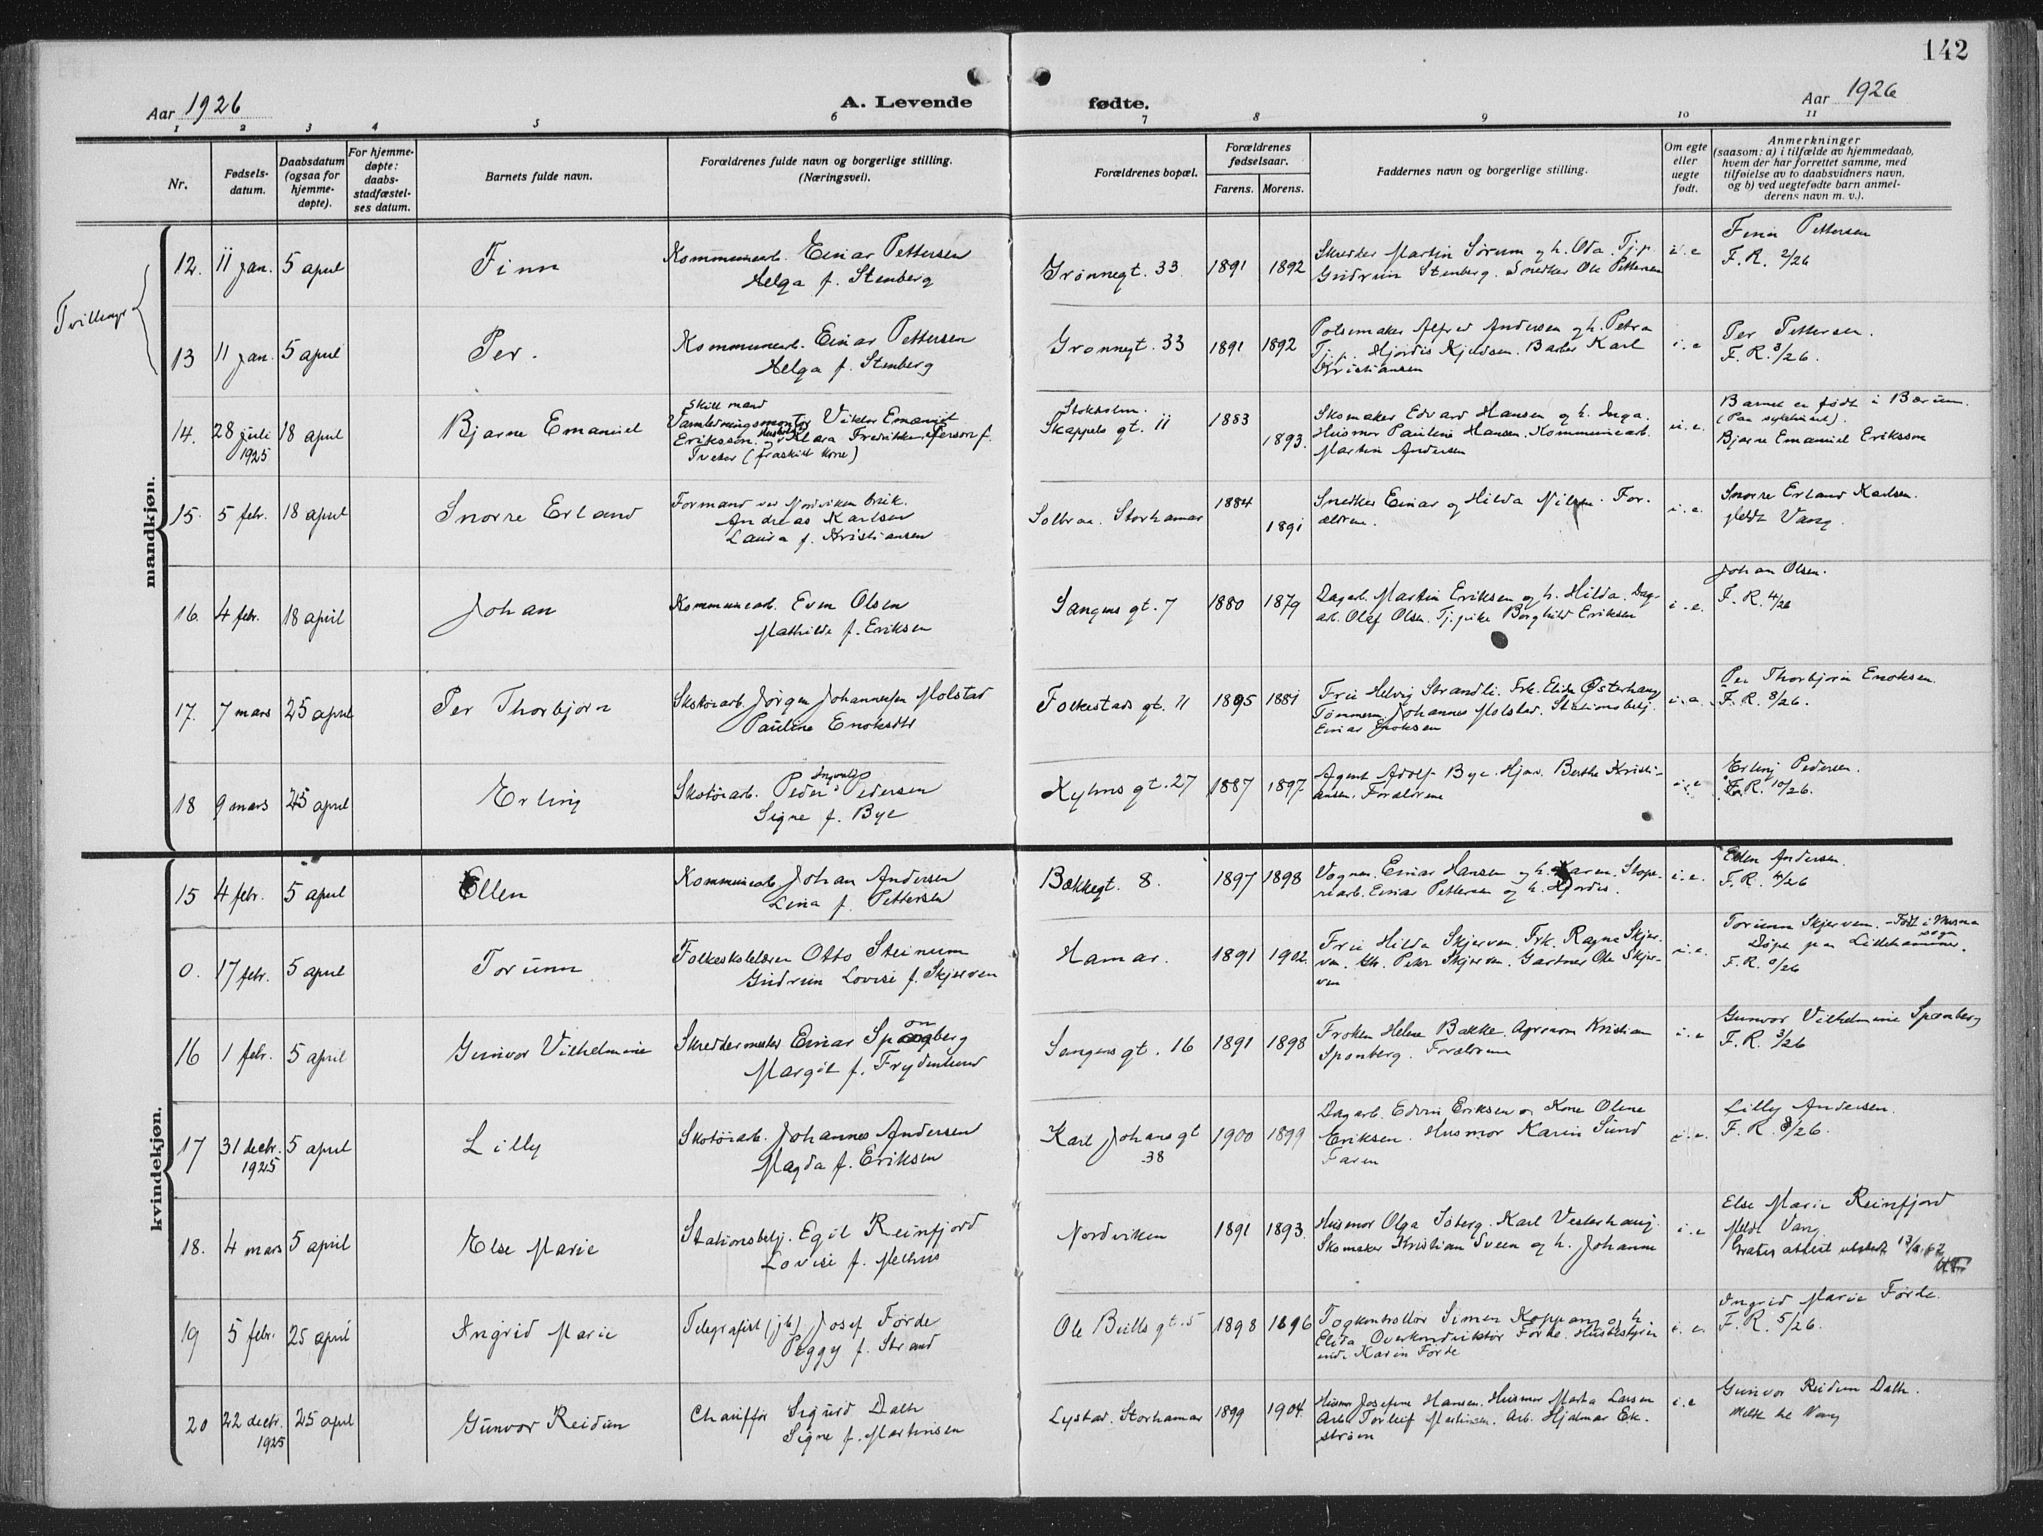 142
Aar 1926
A. Levende
fødte.
Aar 1926
1 2 3 4 5 6 7 8 9 10 11
Nr.
Fødsels-
datum.
Daabsdatum
(ogsaa for
hjemme-
døpte).
For hjemme-
døpte:
daabs-
stadfæstel-
ses datum.
Barnets fulde navn.
Forældrenes fulde navn og borgerlige stilling.
(Næringsvei).
Forældrenes bopæl.
Forældrenes
fødselsaar.
Farens. Morens.
Faddernes navn og borgerlige stilling.
Om egte
eller
uegte
født.
Anmerkninger
(saasom: a) i tilfælde av hjemmedaab,
hvem der har forrettet samme, med
tilføielse av to daabsvidners navn,
og b) ved uegtefødte barn anmel-
derens navn m. v.).
mandkjøn.
12. 11 jan. 5 april Finn
Kommunearb. Einar Pettersen
Helga f. Stenberg
Grønnegt. 33. 1891 1892
Skredder Martin Sørum og h. Oda. Tj.p.
Gudrun Stenberg. Snedker Ole Pettersen
i. e
Finn Pettersen
F. R. 2/26
13 11 jan. 5 april Per.
Kommunearb. Einar Pettersen
Helga f. Stenberg
Grønnegt. 33 1891 1892
Pølsemaker Alfred Andersen og h. Petra
Tj.p. Hjørdis Kjeldsen. Barber Karl
Kristiansen
i. e
Per Pettersen.
F. R. 3/26.
14. 28 juli 18 april Bjarne Emanuel
1925
Skilt mand
Viktor Emanuel
Erikssen. og Klara Fredrikke f.
(fraskilt kone)
Stokholm.
Skappels gt. 11 1883
1893.
Skomaker Edvard Hansen og h. Inga.
Husmor Pauline Hansen. Kommunearb.
Martin Andersen
u. e.
Barnet er født i Bærum.
Bjarne Emanuel Eriksson
15. 5 febr. 18 april Snorre Erland
Formand ved Nordviken bruk.
Andreas Karlsen
Laura f. Kristiansen
Solbraa. Storhamar 1884
1891
Snedker Einar og Hilda Nilsen. For-
ældrene.
i. e.
Snorre Erland Karlsen.
Meldt Vang.
16. 4 febr. 18 april Johan
Kommunearb. Even Olsen
Mathilde f. Eriksen
Sangens gt. 7 1880 1879
Dagarb. Martin Eriksen og h. Hilda. Dag-
arb. Olaf Olsen. Tj.pike Borghild Eriksen
i. e.
Johan Olsen.
F. R. 4/26
17. 7 mars 25 april Per Thorbjørn
Skotøiarb. Jørgen Johannessen Molstad
Pauline
Folkestads gt. 11 1895 1881
Fru Helvig Strandli. Frk. Elida Østerhaug
Tømmerm. Johannes Molstad. Stationsbetj.
Einar Enoksen
Per Thorbjørn Enoksen.
F. R. 8/26.
18 9 mars 25 april Erling
Ingvald
Skotøiarb. Peder Pedersen
Signe f. Bye
Kyhns gt. 27 1887 1897
Agent Adolf Bye. Hjav. Berthe Kristi-
ansen. Forældrene
i. e
Erling Pedersen.
F. R. 10/26.
kvindekjøn.
15 4 febr. 5 april Ellen
Kommunearb Johan Andersen
Lina f. Pettersen
Bækkegt. 8. 1897 1898
Vognm. Einar Hansen og h. Karen. Støpe-
riarb. Einar Pettersen og h. Hjørdis.
i. e.
Ellen Andersen.
F. R. 4/26
0. 17 febr. 5 april Torunn
Folkeskolelærer Otto Steinum
Gudrun Lovise f. Skjerven
Hamar. 1891 1902
Fru Hilda Skjerven. Frk. Ragna Skjer-
ven. Peter Skjerven. Gartner Ole Skjer-
ven
Torunn Skjerven. Født i
Døpt paa Lillehammer.
F. R. 0/26
16 1 febr. 5 april Gunvor Vilhelmine
Skreddermester Einar Sponberg
Margit f. Frydenlund
Sangens gt. 16 1891 1898
Frøken Helene Bakke. Agronom Kristian
Sponberg. Forældrene
i. e
Gunvor Vilhelmine Sponberg
F. R. 3/26
17 31 decbr. 5 april Lilly
1925
Skotøiarb. Johannes Andersen
Magda f. Eriksen
Karl Johans gt 1900 1899
38
Dagarb. Edvin Eriksen og Kone Oline
Eriksen. Husmor Karin Sund
Faren
Lilly Andersen.
F. R. 8/26.
18. 4 mars 5 april Else Marie
Stationsbetj. Egil Reinfjord
Lovise f. Melhus
Nordviken 1891 1893.
Husmor Olga Søberg. Karl Vesterhaug.
Skomaker Kristian Sveen og h. Johanne
i. e
Else Marie Reinfjord
Meldt Vang
Gratis attest utstedt
19 5 febr. 25 april Ingrid Marie
Telegrafist (jb) Josef Førde
Peggy f. Strand
Ole Bulls gt. 5 1898 1896
Togkontrollør Simen Koppang og h.
Elida. Overkonduktør Førde. Husbestyrer
inde Karin Førde
Ingrid Marie Førde.
F. R. 5/26.
20 22 decbr. 25 april Gunvor Reidun
1925
Chauffør Sigurd Dalh
Signe f. Martinsen
Lystad. Storhamar 1899 1904.
Husmor Josefine Hansen. Husmor Marta Larsen
Arb. Torleif Martinsen. Arb. Hjalmar Ek-
strøm
i. e
Gunvor Reidun Dalh.
Meldt til Vang
Tvillinger